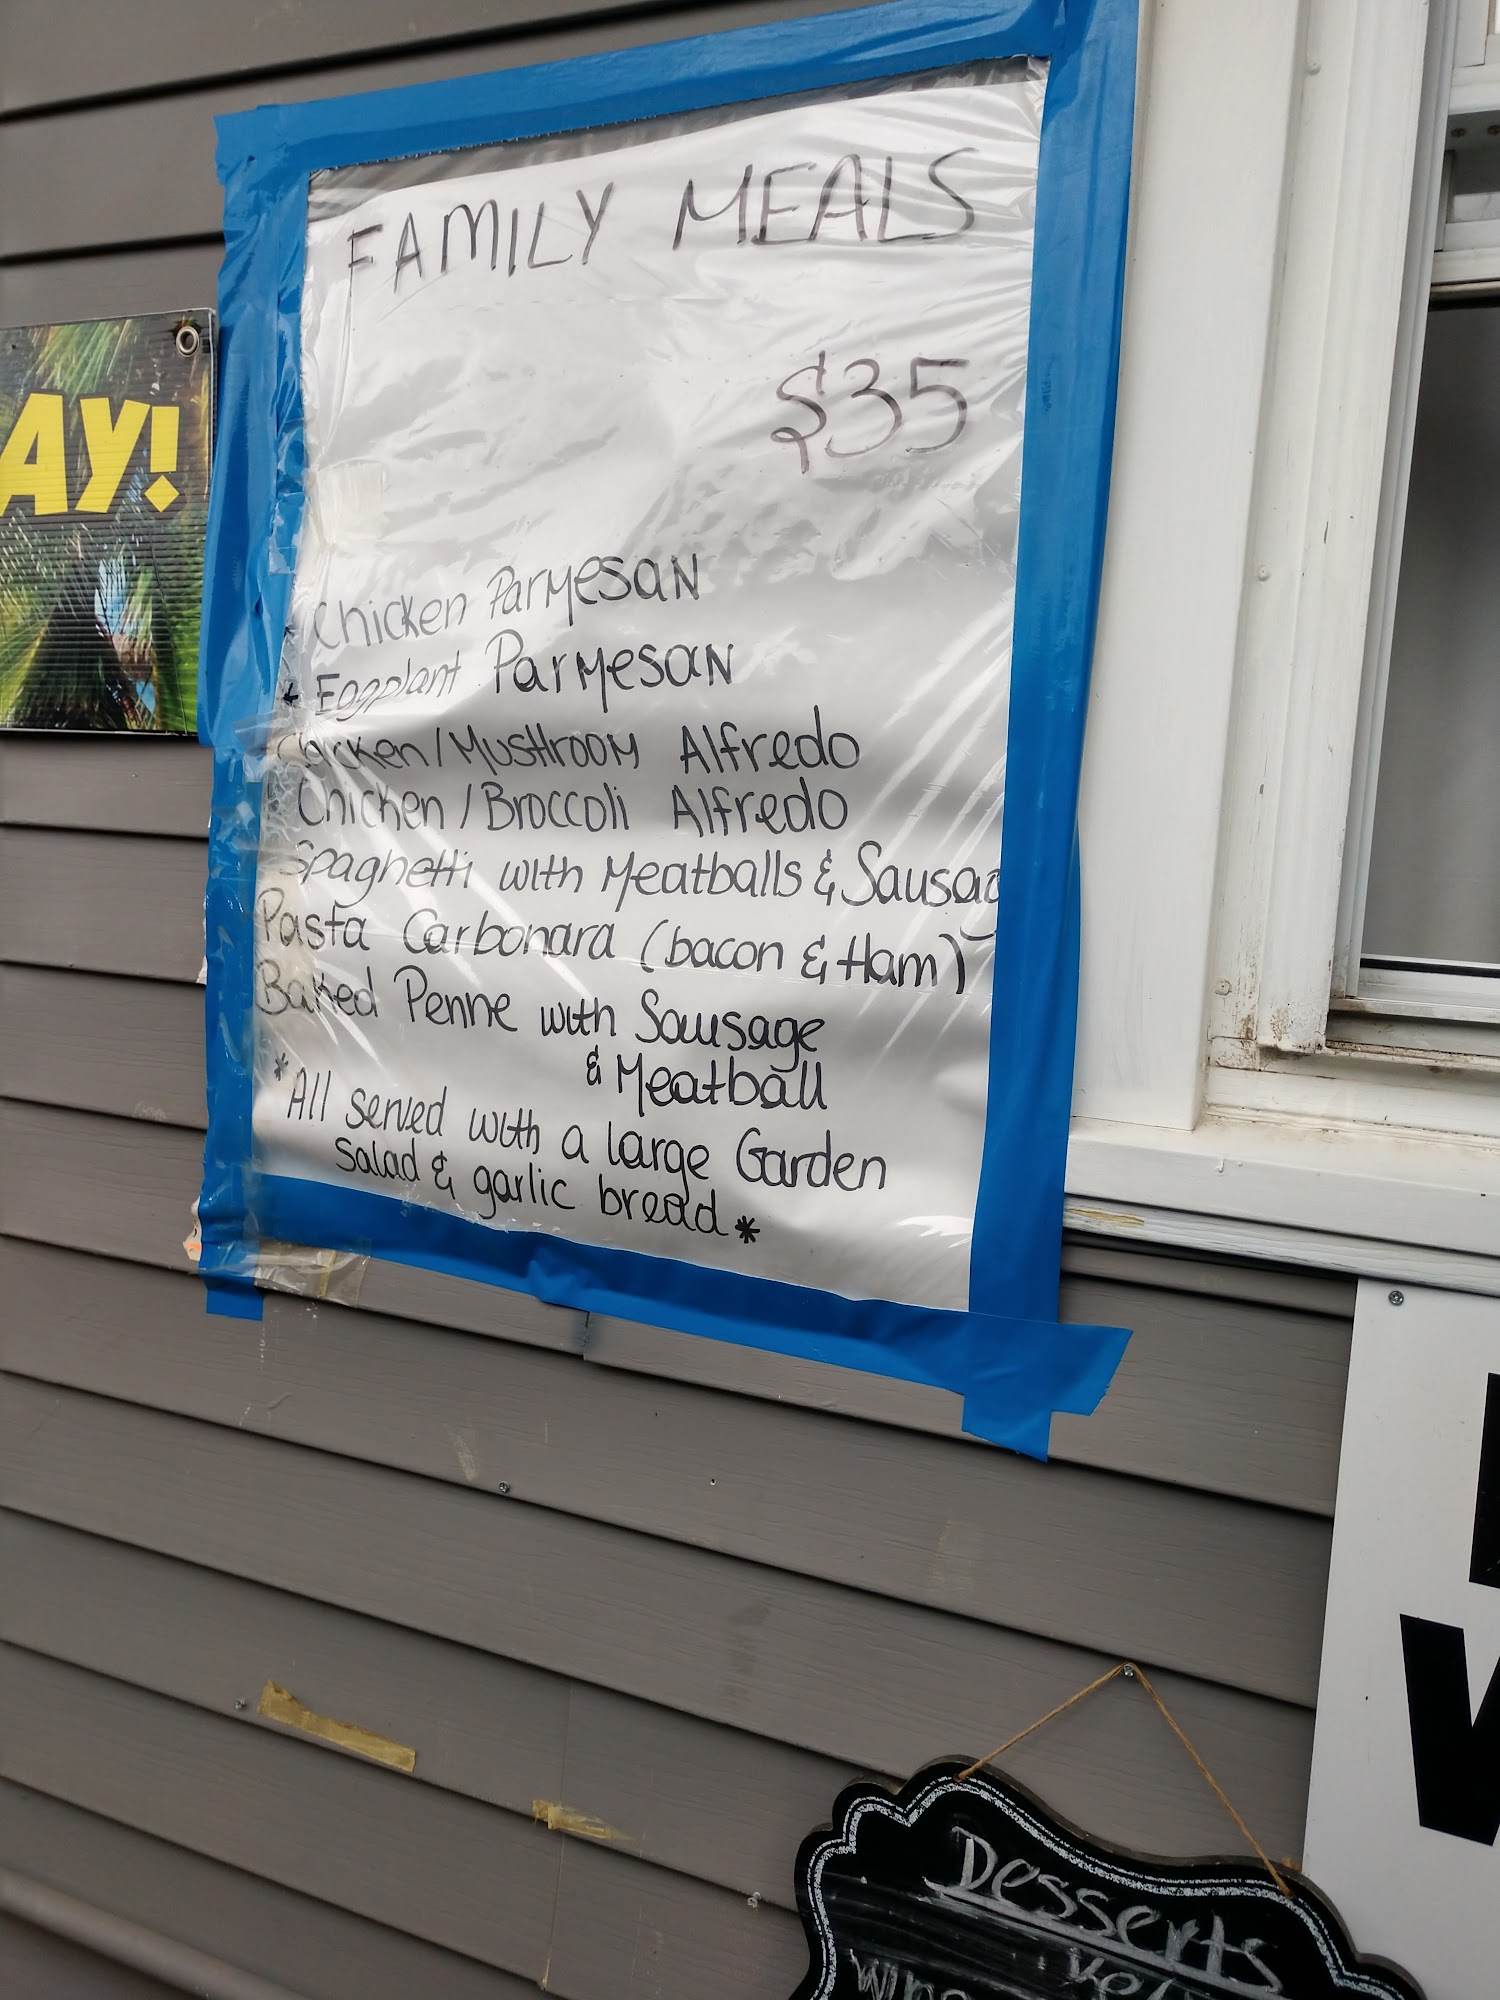 FAMILY MEALS
$35
* Chicken Parmesan
* Eggplant Parmesan
Chicken/Mushroom Alfredo
Chicken/Broccoli Alfredo
Spaghetti with Meatballs & Sausag
Pasta Carbonara (bacon & Ham)
Baked Penne with Sausage
& Meatball
*All served with a large Garden
Salad & garlic bread*
AY!
Desserts